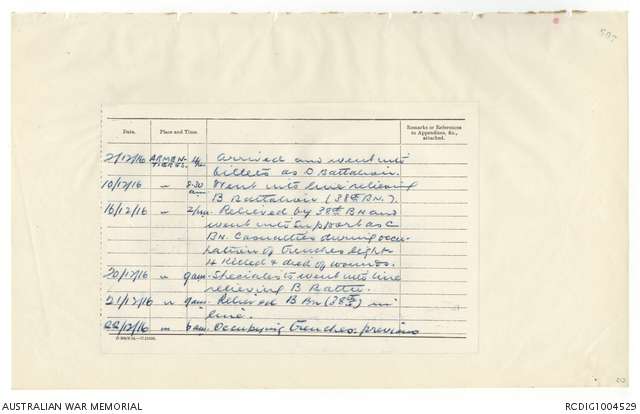 505
Date. Place and Time. Remarks or References to Appendices, &c., attached.
2/12/16 ARMEN- Arrived and went into
TIERES. billets as D Battalion.
10/12/16 " 8.30 Went into line relieving
am. B Battalion (38th Bn.).
16/12/16 " Relieved by 38th Bn and
went into support as C
Bn. Casualties during occu-
pation of trenches light
4 Killed & died of wounds.
20/12/16 " 9am. Specialists went into line
relieving B Battn.
21/12/16 " 9am. Relieved B Bn (38th) in
line.
22/12/16 " 6am. Occupying trenches previous
AUSTRALIAN WAR MEMORIAL
RCDIG1004529